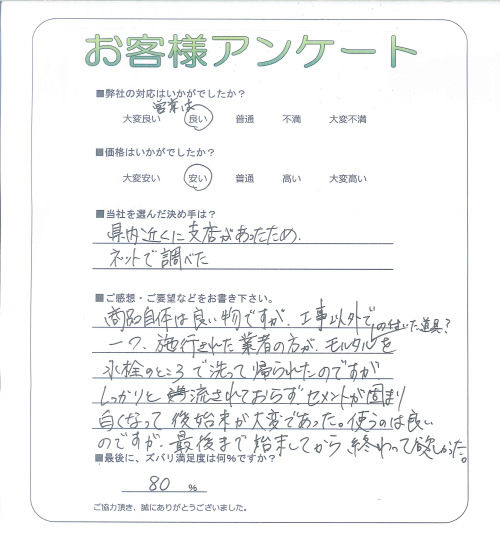 お客様アンケート
■弊社の対応はいかがでしたか?
営業は
大変良い 良い 普通 不満 大変不満
■価格はいかがでしたか?
大変安い 安い 普通 高い 大変高い
■当社を選んだ決め手は?
県内近くに支店があったため。
ネットで調べた
■ご感想・ご要望などをお書き下さい。
商品自体は良い物ですが、工事以外で
の付いた道具?
一つ、施行された業者の方が、モルタルを
水栓のところで洗って帰られたのですが
しっかりと流されておらずセメントが固まり
白くなって後始末が大変であった。使うのは良い
のですが、最後まで始末してから終わって欲しかった。
■最後に、ズバリ満足度は何%ですか?
80 %
ご協力頂き、誠にありがとうございました。